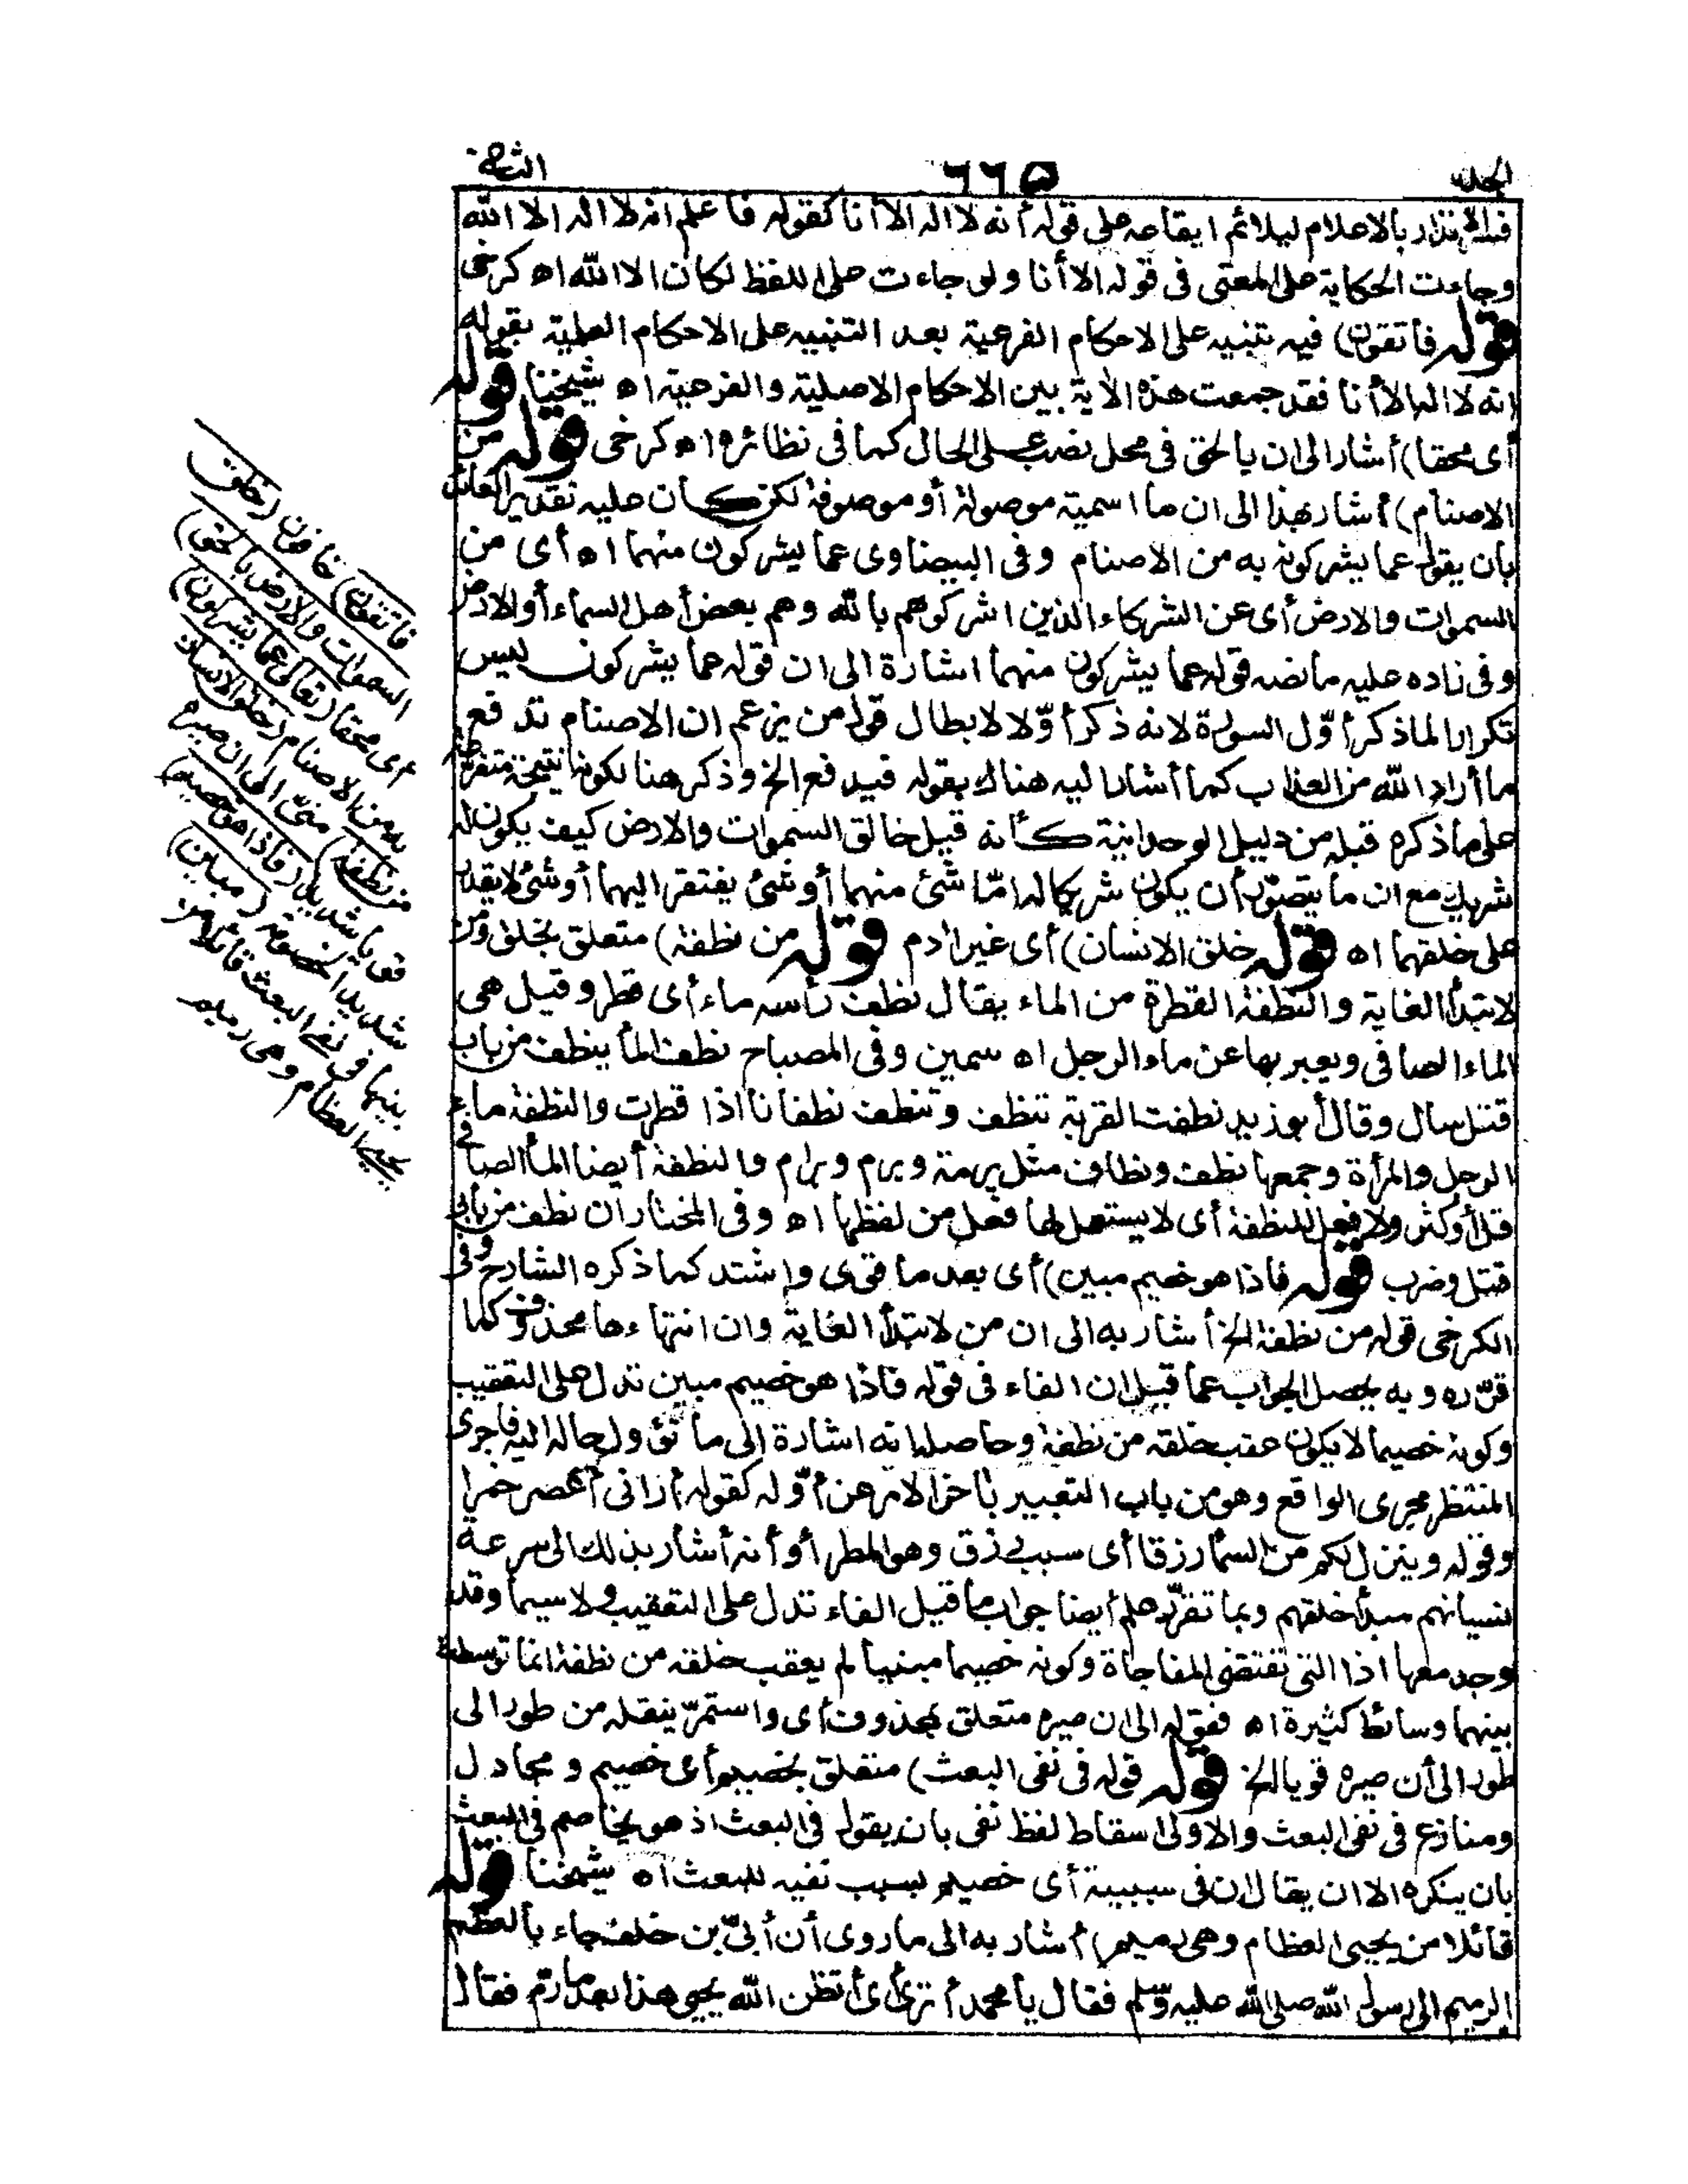 الجلد ٦٦٥ الثانى
بالاعلام ليلائم ايقاعه على قوله أنه لا اله الا أنا كقوله فاعلم انه لا اله الا الله
وجاءت الحكاية على المعنى فى قوله الا أنا ولو جاءت على اللفظ لكان الا الله اه كرخى
قوله فاتقون) فيه تنبيه على الاحكام الفرعية بعد التنبيه على الاحكام العلمية بقوله
انه لا اله الا أنا فقد جمعت هذه الآية بين الاحكام الاصلية والفرعية اه شيخنا قوله
أى محقا) أشار الى ان بالحق فى محل نصب على الحال كما فى نظائره اه كرخى قوله من
الاصنام) أشار بهذا الى ان ما اسمية موصولة أو موصوفة لكن كان عليه تقدير العائد
بان يقول عما يشركونه به من الاصنام وفى البيضاوى عما يشركون منهما اه أى من
السموات والارض أى عن الشركاء الذين اشركوهم بالله وهم بعض أهل السماء أو الارض
وفى زاده عليه ما نصه قوله عما يشركون منهما اشارة الى ان قوله عما يشركون ليس
تكرارا لما ذكر أول السورة لانه ذكر أوّلا لابطال قول من يزعم ان الاصنام تدفع
ما أراد الله من العذاب كما أشار اليه هناك بقوله فيدفع الخ وذكر هنا لكونها نتيجة متفرعة
على ما ذكره قبله من دليل الوحدانية كأنه قيل خالق السموات والارض كيف يكون له
شريك مع ان ما يتصوّر أن يكون شريكا له امّا شئ منهما أو شئ يفتقر اليهما أو شئ لا يقدر
على خلقهما اه قوله خلق الانسان) أى غير آدم قوله من نطفة) متعلق بخلق ومن
لابتدأ الغاية والنطفة القطرة من الماء يقال نطف رأسه ماء أى قطر وقيل هى
الماء الصافى ويعبر بها عن ماء الرجل اه سمين وفى المصباح نطف المأ ينطف من باب
قتل سال وقال أبو زيد نطفت القربة تنطف وتنطف نطفانا اذا قطرت والنطفة ماء
الرجل والمرأة وجمعها نطف ونطاف مثل برمة وبرم وبرام والنطفة أيضا المأ الصافى
قل أو كثر ولا فعل للنطفة أى لا يستعمل لها فعل من لفظها اه وفى المختار أن نطف من بابى
قتل وضرب قوله فاذا هو خصيم مبين) أى بعد ما قوى واشتد كما ذكره الشارح وفى
الكرخى قوله من نطفة الخ أشار به الى ان من لابتدأ الغاية وان انتهاءها محذوف كما
قرّره وبه يحصل الجواب عما قيل ان الفاء فى قوله فاذا هو خصيم مبين تدل على التعقيب
وكونه خصيما لا يكون عقب خلقه من نطفة وحاصله انه اشارة الى ما تؤول حاله اليه فاجرى
المنتظر مجرى الواقع وهو من باب التعبير بآخر الامر عن أوّله كقوله أرانى أعصر خمرا
وقوله وينزل لكم من السمأ رزقا أى سبب رزق وهو المطر أو أنه أشار بذلك الى سرعة
نسيانهم مبدأ خلقهم وبما تقرّر علم أيضا جواب ما قيل الفاء تدل على التعقيب ولا سيما وقد
وجد معها اذا التى تقتضى المفاجاة وكونه خصيما مبنيا لم يعقب خلقه من نطفة انما توسطت
بينهما وسائط كثيرة اه فقوله الى ان صيره متعلق بمحذوف أى واستمرّ ينقله من طور الى
طور الى أن صيره قويا الخ قوله قوله فى نفى البعث) متعلق بخصيم أى خصيم ومجادل
ومنازع فى نفى البعث والاولى اسقاط لفظ نفى بان يقول فى البعث اذ هو يخاصم فى البعث
بان ينكره الا ان يقال ان فى سببية أى خصيم بسبب نفيه للبعث اه شيخنا قوله
قائلا من يحيى العظام وهى رميم) أشار به الى ما روى أن أبىّ بن خلف جاء بالعظم
الرميم الى رسول الله صلى الله عليه وسلم فقال يا محمد أترى أى أتظن الله يحيى هذا بعد ما رمّ فقال
فاتقون) خافون (خلق
السموات والارض بالحق)
أى محقا (تعالى عما يشركون)
به من الاصنام (خلق الانسان
من نطفة) منىّ الى ان صيره
قويا شديدا (فاذا هو خصيم)
شديد الخصومة (مبين)
بينها فى نفى البعث قائلا من
يحيى العظام وهى رميم